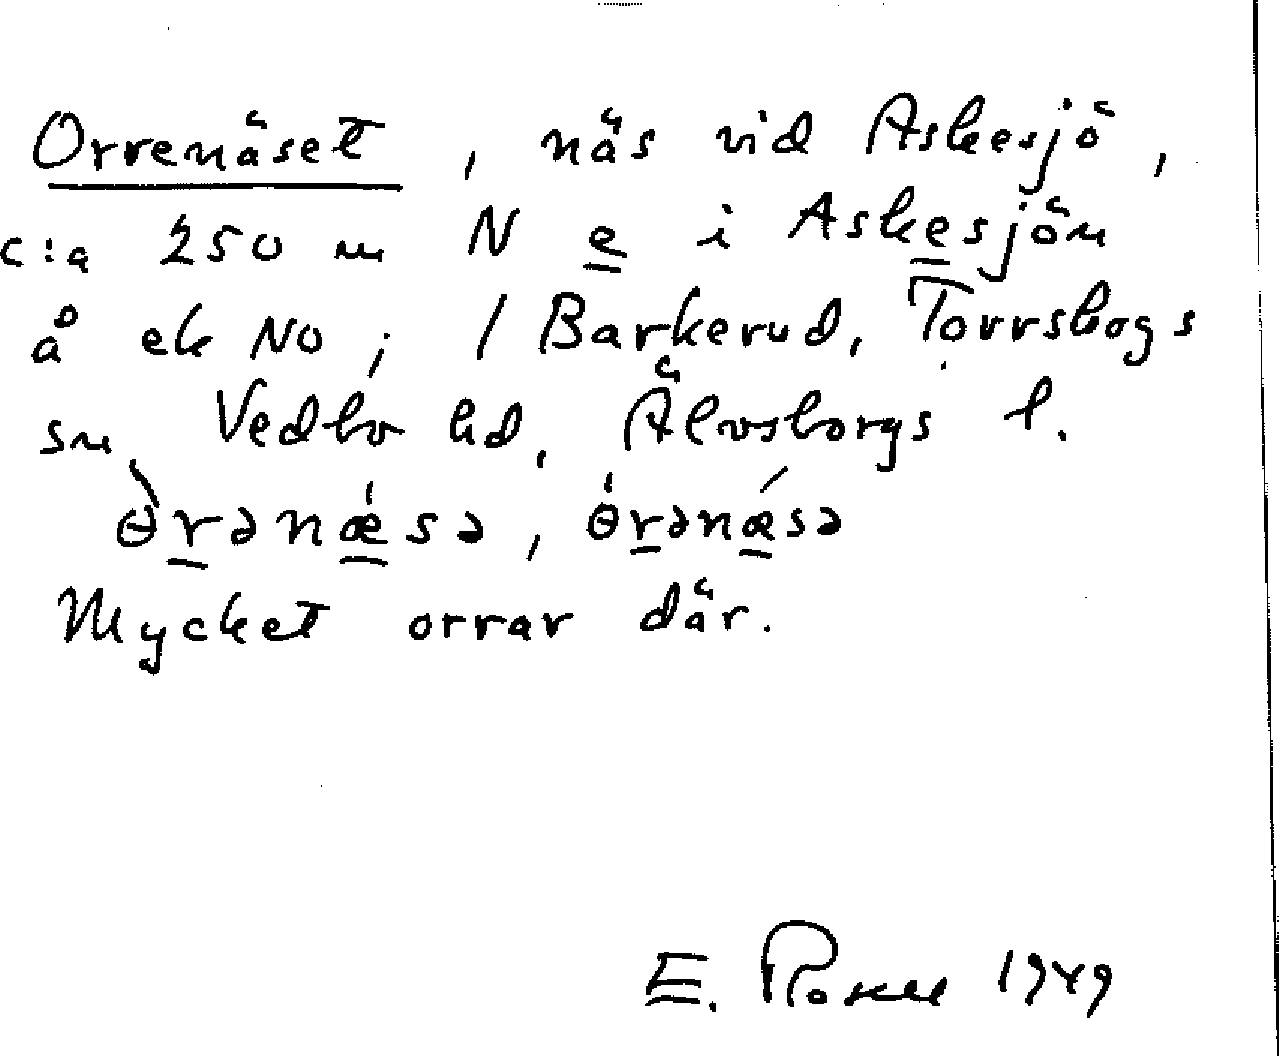 Orrenäset, näs vid Askesjö,
c:a 250 m N e i Askesjön
å ek NO; / Barkerud, Torrskogs
sn, Vedbo hd, Älvsborgs l.
ɵ̀rənǽsə, ɵ́rənǽsə
Mycket orrar där.
E. 1949